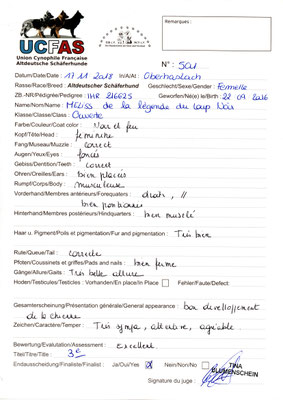 UCFAS
Union Cynophile Française
Altdeutsche Schäferhunde
Remarques :
N° : 501
Datum/Date/Date : 17 11 2018 In/A/At : Oberhaslach
Rasse/Race/Breed : Altdeutscher Schäferhund Geschlecht/Sexe/Gender : Femelle
ZB.-NR/Pédigrée/Pedigree : IHR 216625 Geworfen/Né(e) le/Birth : 22 09 2016
Name/Nom/Name : Méliss de la légende du loup Noir
Klasse/Classe/Class : Ouverte
Farbe/Couleur/Coat color : Noir et feu
Kopf/Tête/Head : féminine
Fang/Museau/Muzzle : correct
Augen/Yeux/Eyes : foncés
Gebiss/Dentition/Teeth : correct
Ohren/Oreilles/Ears : bien placées
Rumpf/Corps/Body : musculeuse
Vorderhand/Membres antérieurs/Forequaters : droits, //
bien positionnés
Hinterhand/Membres postérieurs/Hindquarters : bien musclé
Haar u. Pigment/Poils et pigmentation/Fur and pigmentation : Très bien
Rute/Queue/Tail : correcte
Pfoten/Coussinets et griffes/Pads and nails : bien fermé
Gänge/Allure/Gaits : Très belle allure
Hoden/Testicules/Testicles : Vorhanden/En place/In Place Fehler/Faute/Defect:
Gesamterscheinung/Présentation générale/General appearance : bon développement
de la chienne
Zeichen/Caractère/Temper : Très sympa, attentive, agréable.
Bewertung/Evaluation/Assessment : Excellent
Titel/Titre/Title : 3e
Endausscheidung/Finaliste/Finalist : Ja/Oui/Yes X Nein/Non/No
TINA
BLUMENSCHEIN
Signature du juge :